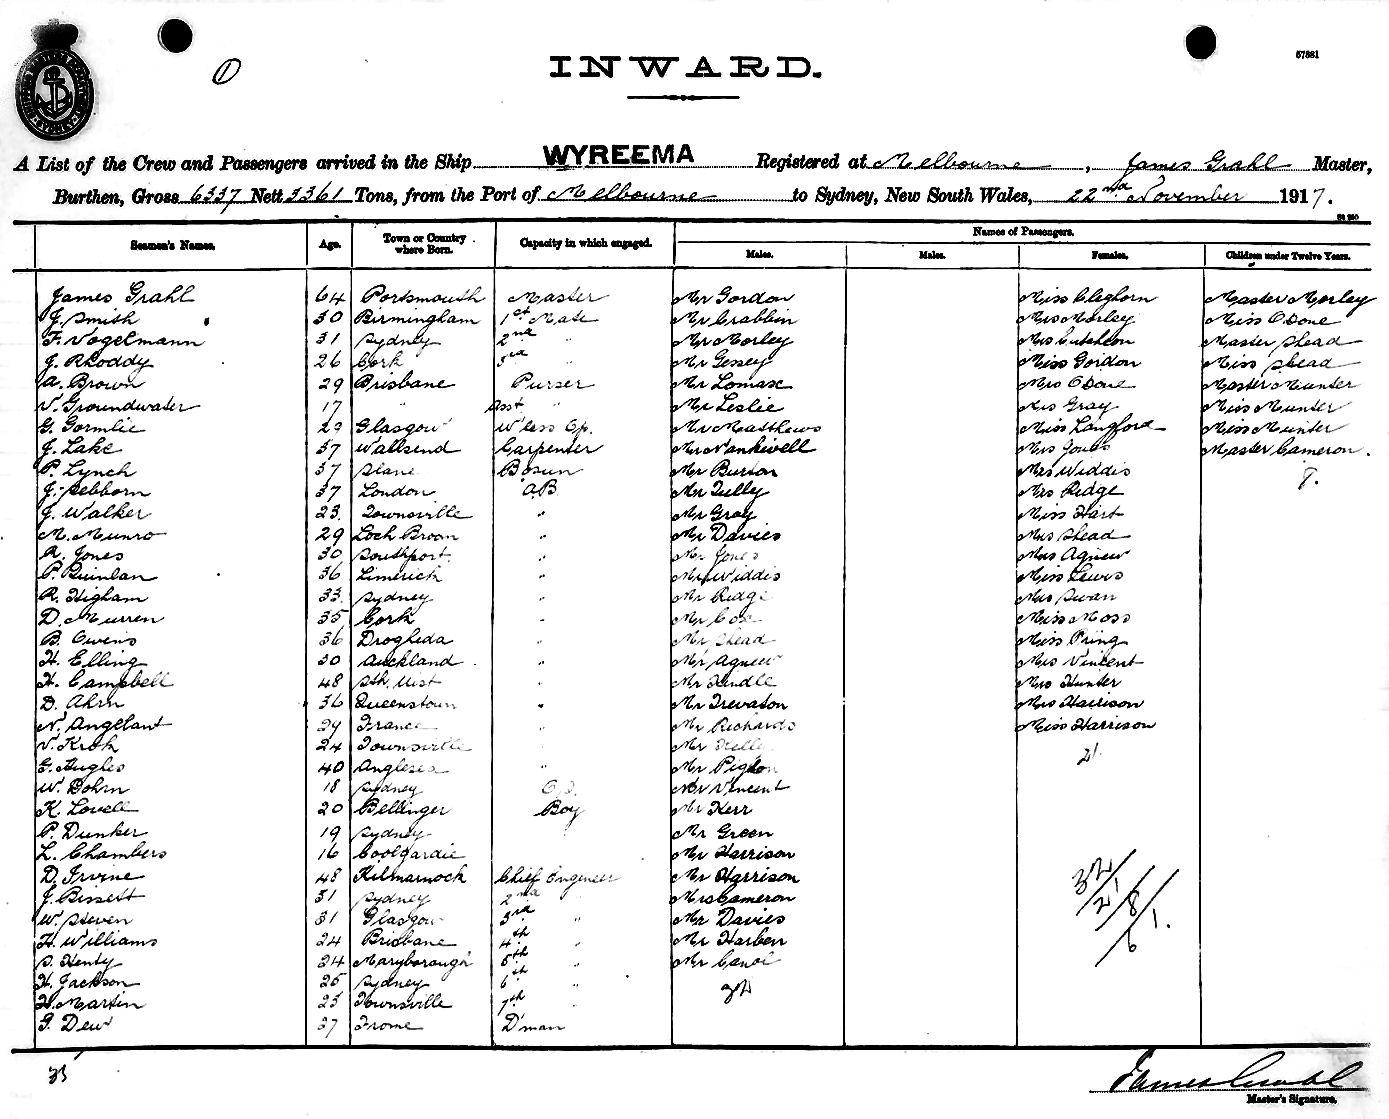 ①
INWARD.
57381
A List of the Crew and Passengers arrived in the Ship WYREEMA Registered at Melbourne, James Grahl Master,
Burthen, Gross 6337 Nett 3361 Tons, from the Port of Melbourne to Sydney, New South Wales, 22nd November 1917.
Names of Passengers.
Seamen's Names. Age. Town or Country where Born. Capacity in which engaged. Males. Males. Females. Children under Twelve Years.
James Grahl 64 Portsmouth Master Mr Gordon Miss Cleghorn Master Morley
J. Smith 30 Birmingham 1st Mate Mr Crabbin Mrs Morley Miss O'Done
F. Vogelmann 31 Sydney 2nd " Mr Morley Mrs Cutcheon Master Shead
J. Rhoddy 26 Cork 3rd " Mr Gessey Miss Gordon Miss Shead
A. Brown 29 Brisbane Purser Mr Lomax Mrs O'Done Master Munter
V. Groundwater 17 " Asst " Mr Leslie Mrs Gray Miss Munter
G. Gormlie 23 Glasgow W'less Op. Mr Matthews Miss Langford Miss Munter
J. Lake 37 Wallsend Carpenter Mr Nankivell Mrs Jones Master Cameron.
P. Lynch 37 Slane Bosun Mr Burson Mrs Widdis
J. Sebborn 37 London A.B. Mr Tully Mrs Ridge
J. Walker 23. Townsville " Mr Gray Miss Hart
M. Munro 29 Loch Broom " Mr Davies Mrs Shead
R. Jones 30 Southport " Mr Jones Mrs Agnew
P. Quinlan 36 Limerick " Mr Widdis Miss Lewis
R. Higham 33. Sydney " Mr Ridge Mrs Swan
D. Murren 35 Cork " Mr Cox Miss Moss
B. Owens 36 Drogheda " Mr Shead Miss Pring
H. Elling 30 Auckland " Mr Agnew Mrs Vincent
H. Campbell 48 Sth. Uist " Mr Hindle Mrs Hunter
D. Ahrn 36 Queenstown " Mr Trevason Mrs Harrison
N. Angelant 29 France " Mr Richards Miss Harrison
V. Krok 24 Townsville " Mr Kelly 21.
G. Hugles 40 Anglesea " Mr Pigdon
W. Dohrn 18 Sydney O.S. Mr Vincent
K. Lovell 20 Bellinger Boy Mr Kerr
P. Dunker 19 Sydney Mr Green
L. Chambers 16 Coolgardie Mr Harrison
D. Irvine 48 Kilmarnock Chief Engineer Mr Harrison 32/21/8/1.
J. Bissett 31 Sydney 2nd " Mrs Cameron
W. Steven 31 Glasgow 3rd " Mr Davies
H. Williams 24 Brisbane 4th Mr Harben 6
S. Henty 24 Maryborough 5th " Mr Canoi
H. Jackson 25 Sydney 6th " 32
H. Martin 25 Townsville 7th "
G. Dew 27 Frome D'man
35
James Grahl
Master's Signature.